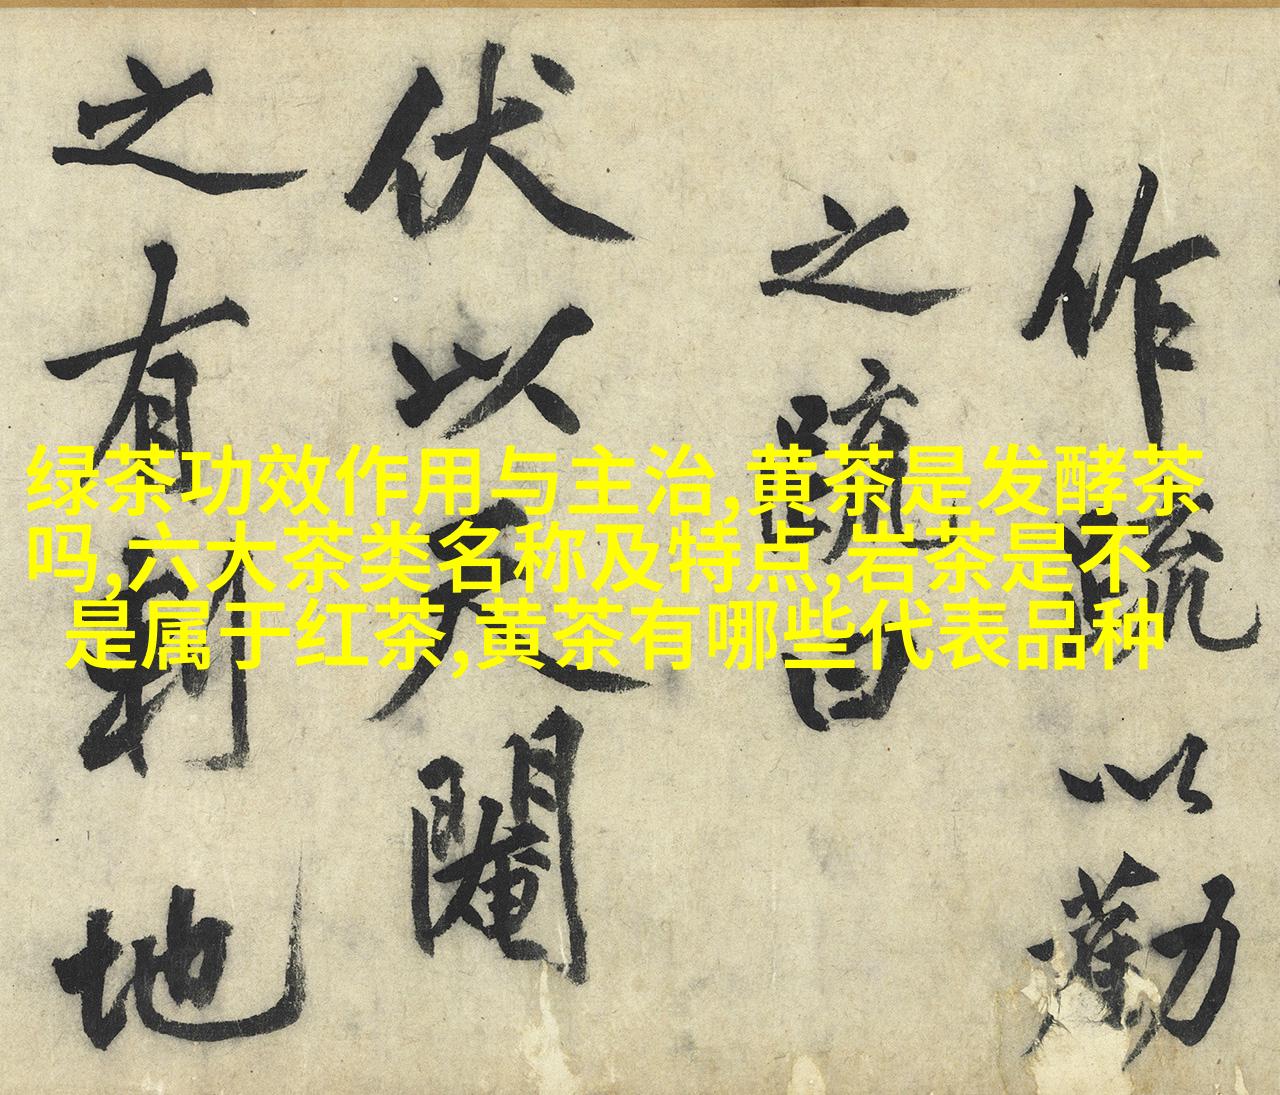 作疏以勸
之疏曰
伏以天閹
之有刺地
绿茶功效作用与主治,黄茶是发酵茶
吗,六大茶类名称及特点,岩茶是不
是属于红茶,黄茶有哪些代表品种